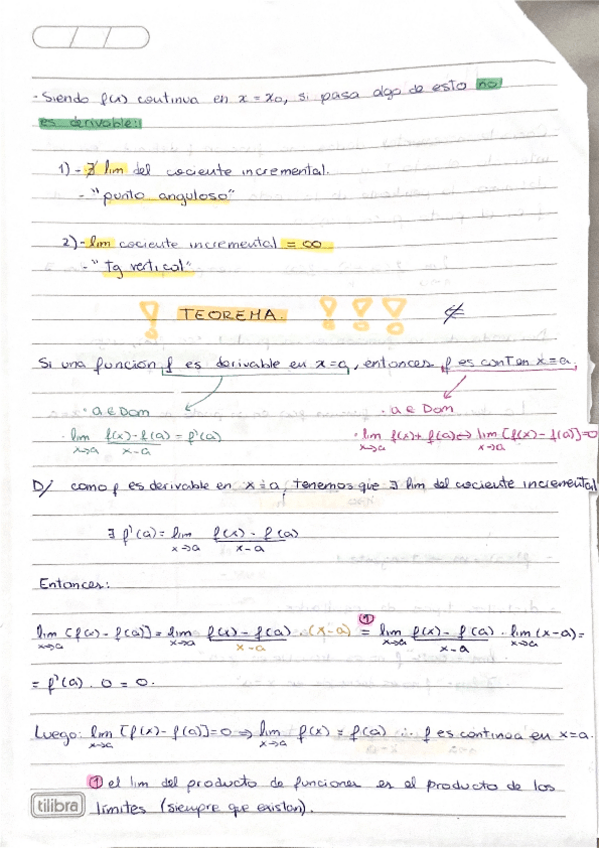 - Siendo f(x) continua en x = x₀, si pasa algo de esto no
es derivable:
1) - ∄ lim del cociente incremental.
- "punto anguloso"
2) - lim cociente incremental = ∞
- "tg vertical"
! TEOREMA. ! ! ! ⊄
Si una función f es derivable en x=a, entonces f es cont en x=a.
· a ∈ Dom · a ∈ Dom
· lim x→a (f(x) - f(a))/(x-a) = f'(a) · lim x→a f(x) + f(a) ↔ lim x→a [f(x) - f(a)] = 0
D/ como f es derivable en x=a, tenemos que ∃ lim del cociente incremental
∃ f'(a) = lim x→a (f(x) - f(a))/(x-a)
Entonces:
lim x→a [f(x) - f(a)] = lim x→a (f(x) - f(a))/(x-a) · (x-a) =① lim x→a (f(x) - f(a))/(x-a) · lim x→a (x-a) =
= f'(a) . 0 = 0.
Luego: lim x→a [f(x) - f(a)] = 0 ⇒ lim x→a f(x) = f(a) ∴ f es continua en x=a.
① el lim del producto de funciones es el producto de los
límites (siempre que existan).
tilibra